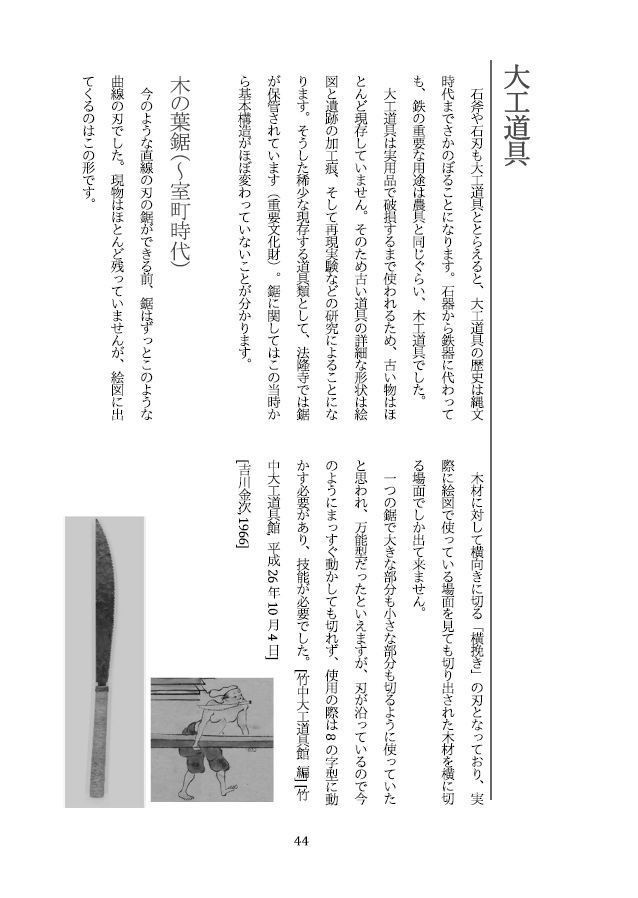 大工道具
石斧や石刃も大工道具ととらえると、大工道具の歴史は縄文
時代までさかのぼることになります。石器から鉄器に代わって
も、鉄の重要な用途は農具と同じぐらい、木工道具でした。
大工道具は実用品で破損するまで使われるため、古い物はほ
とんど現存していません。そのため古い道具の詳細な形状は絵
図と遺跡の加工痕、そして再現実験などの研究によることにな
ります。そうした稀少な現存する道具類として、法隆寺では鋸
が保管されています（重要文化財）。鋸に関してはこの当時か
ら基本構造がほぼ変わっていないことが分かります。
木の葉鋸（～室町時代）
今のような直線の刃の鋸ができる前、鋸はずっとこのような
曲線の刃でした。現物はほとんど残っていませんが、絵図に出
てくるのはこの形です。
木材に対して横向きに切る「横挽き」の刃となっており、実
際に絵図で使っている場面を見ても切り出された木材を横に切
る場面でしか出て来ません。
一つの鋸で大きな部分も小さな部分も切るように使っていた
と思われ、万能型だったといえますが、刃が沿っているので今
のようにまっすぐ動かしても切れず、使用の際は 8 の字型に動
かす必要があり、技能が必要でした。[竹中大工道具館 編] [竹
中大工道具館, 平成 26 年 10 月 4 日]
[吉川金次, 1966]
44